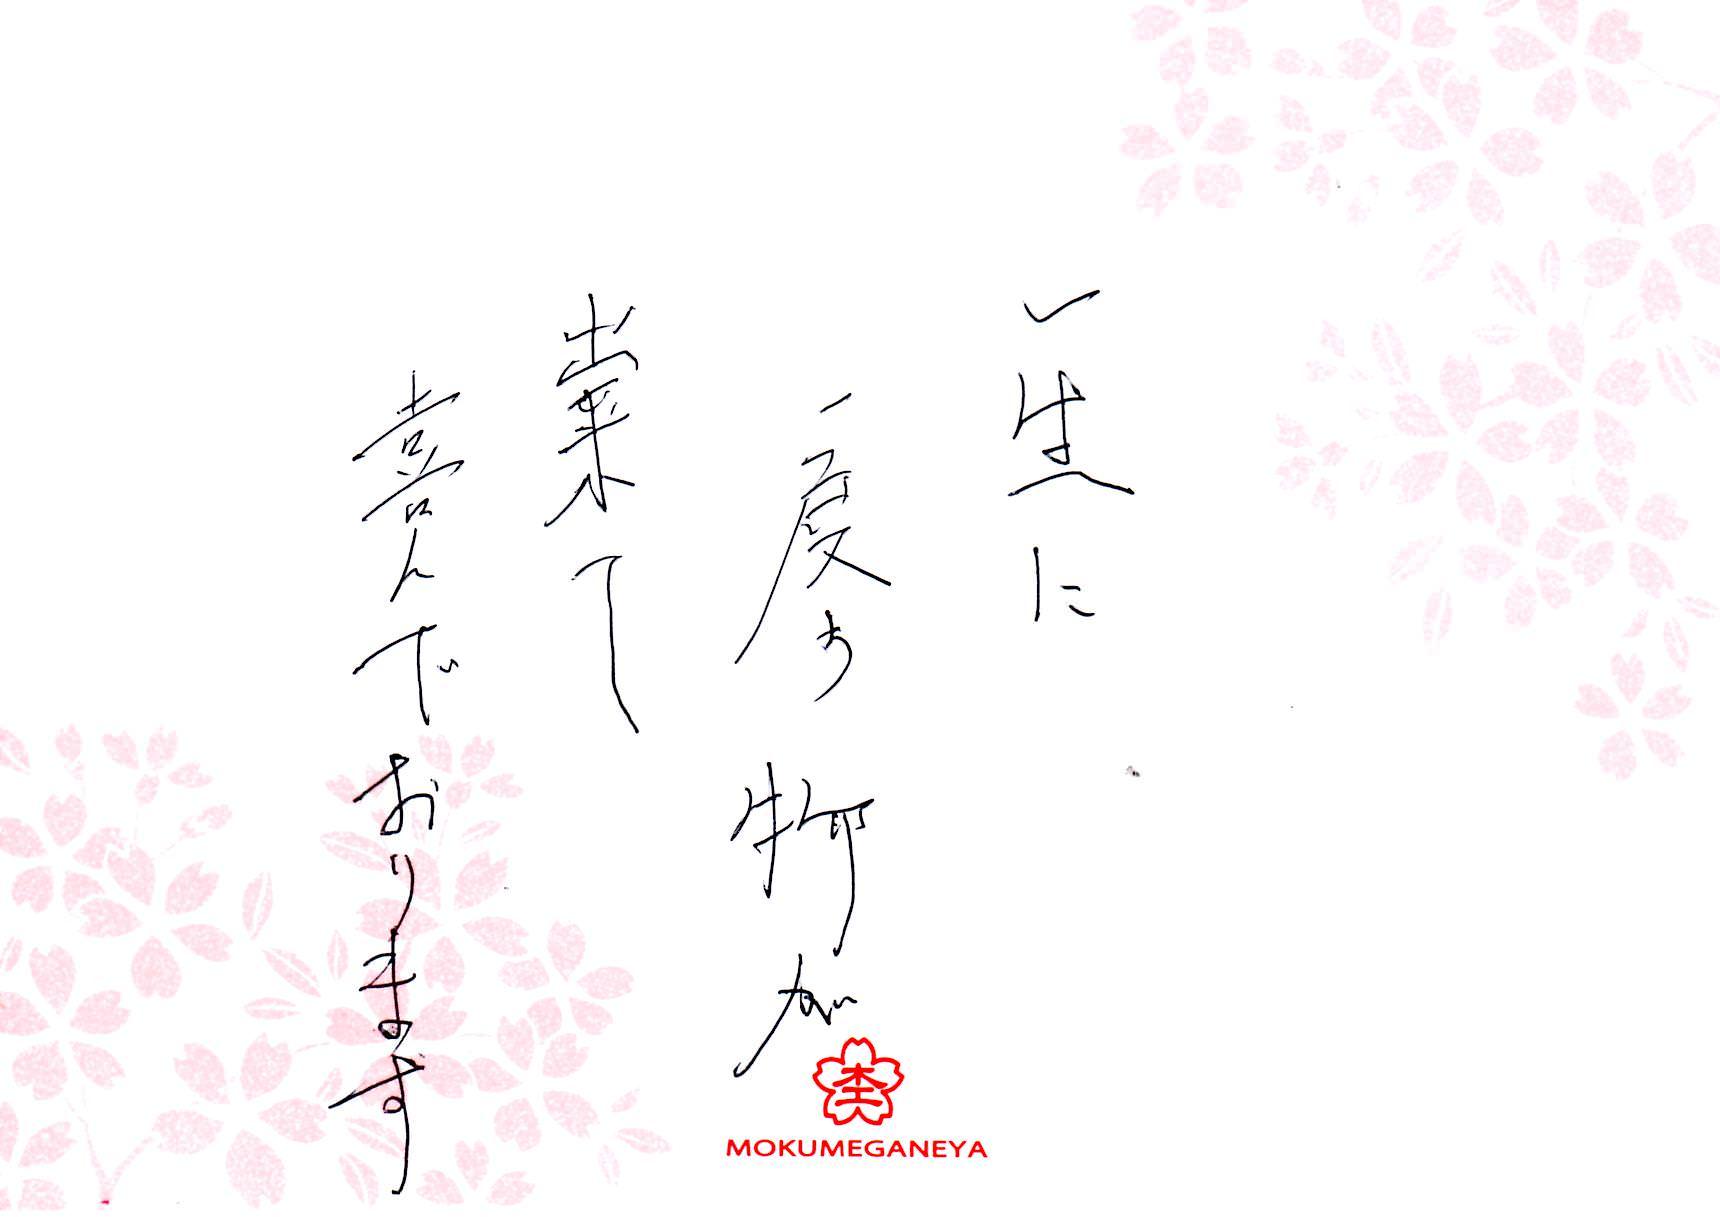 一生に
一度の物が
出来て
喜んでおります
杢
MOKUMEGANEYA